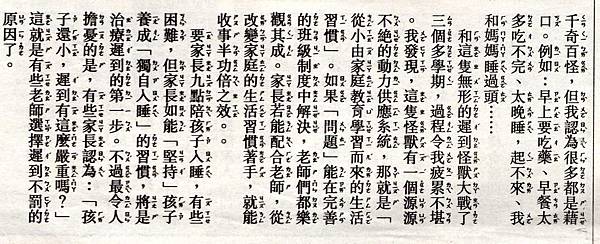 千奇百怪，但我認為很多都是藉
口。例如：早上要吃藥、早餐太
多吃不完、太晚睡，起不來、我
和媽媽睡過頭……
和這隻無形的遲到怪獸大戰了
三個多學期，過程令我疲累不堪
。我發現，這隻怪獸有一個源源
不絕的動力供應系統，那就是「
從小由家庭教育學習而來的生活
習慣」。如果「問題」能在完善
的班級制度中解決，老師們都樂
觀其成。家長若能配合老師，從
改變家庭的生活習慣著手，就能
收事半功倍之效。。
要家長九點陪孩子入睡，有些
困難，但家長如能「堅持」孩子
養成「獨自入睡」的習慣，將是
治療遲到的第一步。不過最令人
擔憂的是，有些家長認為：「孩
子還小，遲到有這麼嚴重嗎？」
這就是有些老師選擇遲到不罰的
原因了。